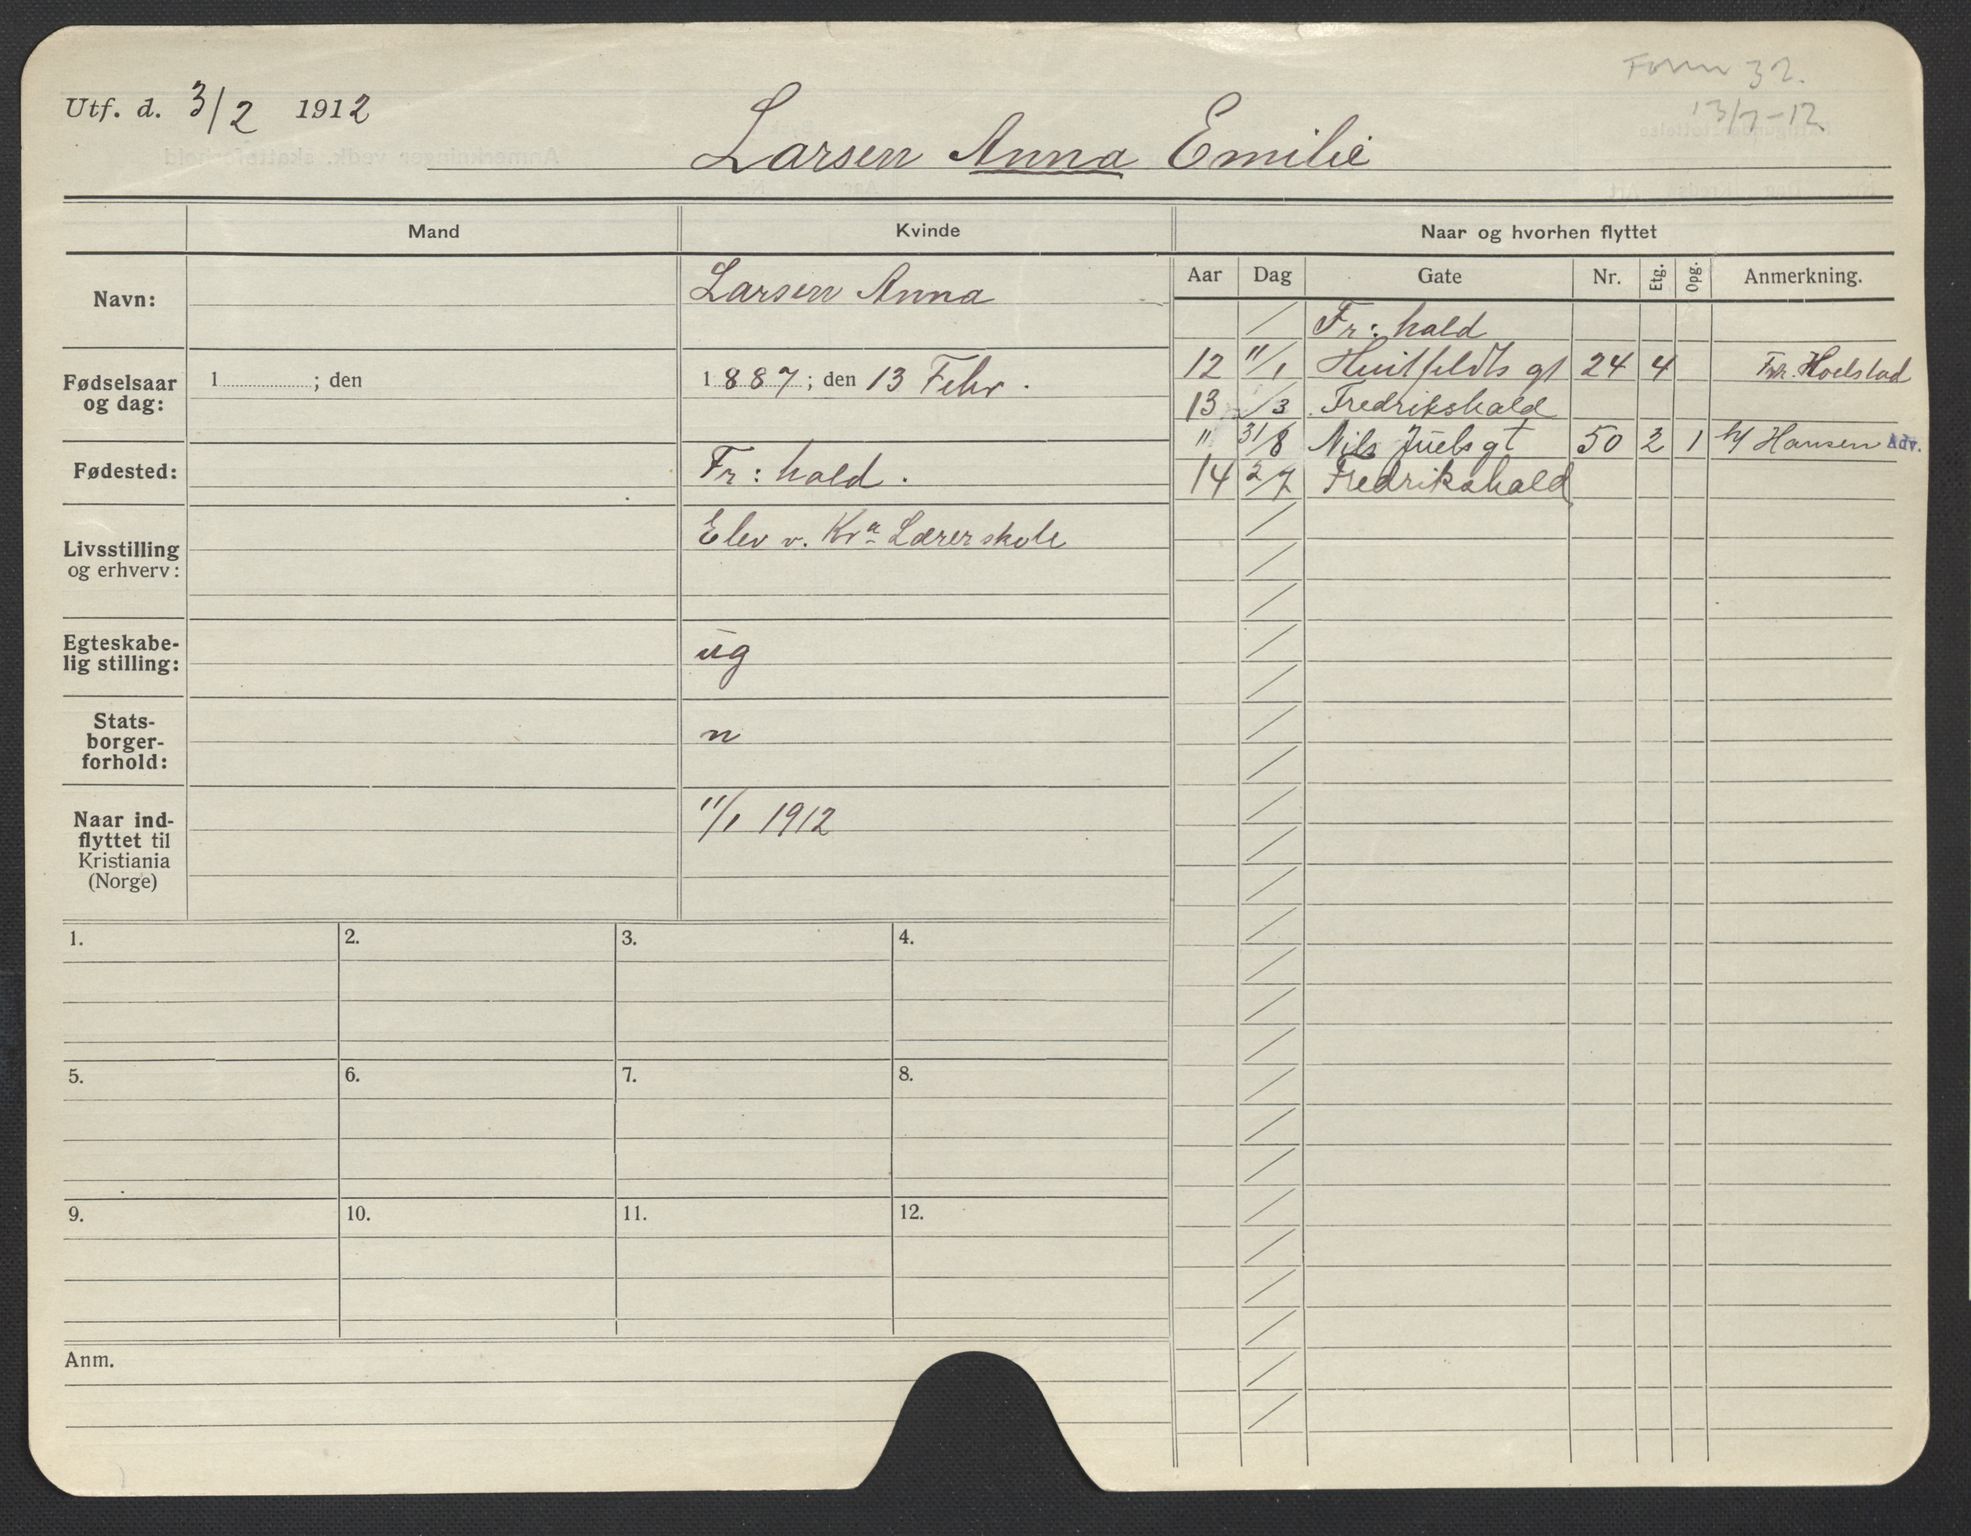 Form 32.
13/7-12
Utf. d. 3/2 1912
Larsen Anna Emilie
Mand
Kvinde
Naar og hvorhen flyttet
Aar Dag Gate Nr. Etg. Opg. Anmerkning.
Navn:
Larsen Anna
Fødselsaar og dag:
1 ; den
1887; den 13 Febr.
Fødested:
Fr: hald.
Livsstilling og erhverv:
Elev v. Kra Lærerskole
Egteskabe-
lig stilling:
ug
Stats-
borger-
forhold:
n
Naar ind-
flyttet til
Kristiania
(Norge)
11/1 1912
/ Fr: hald
12 11/1 Huitfeldts gt 24 4 Fr. Hoelstad
13 /3 Fredrikshald
" 31/8 Nils Juels gt 50 2 1 h/ Hansen Adv.
14 2/7 Fredrikshald
1. 2. 3. 4.
5. 6. 7. 8.
9. 10. 11. 12.
Anm.